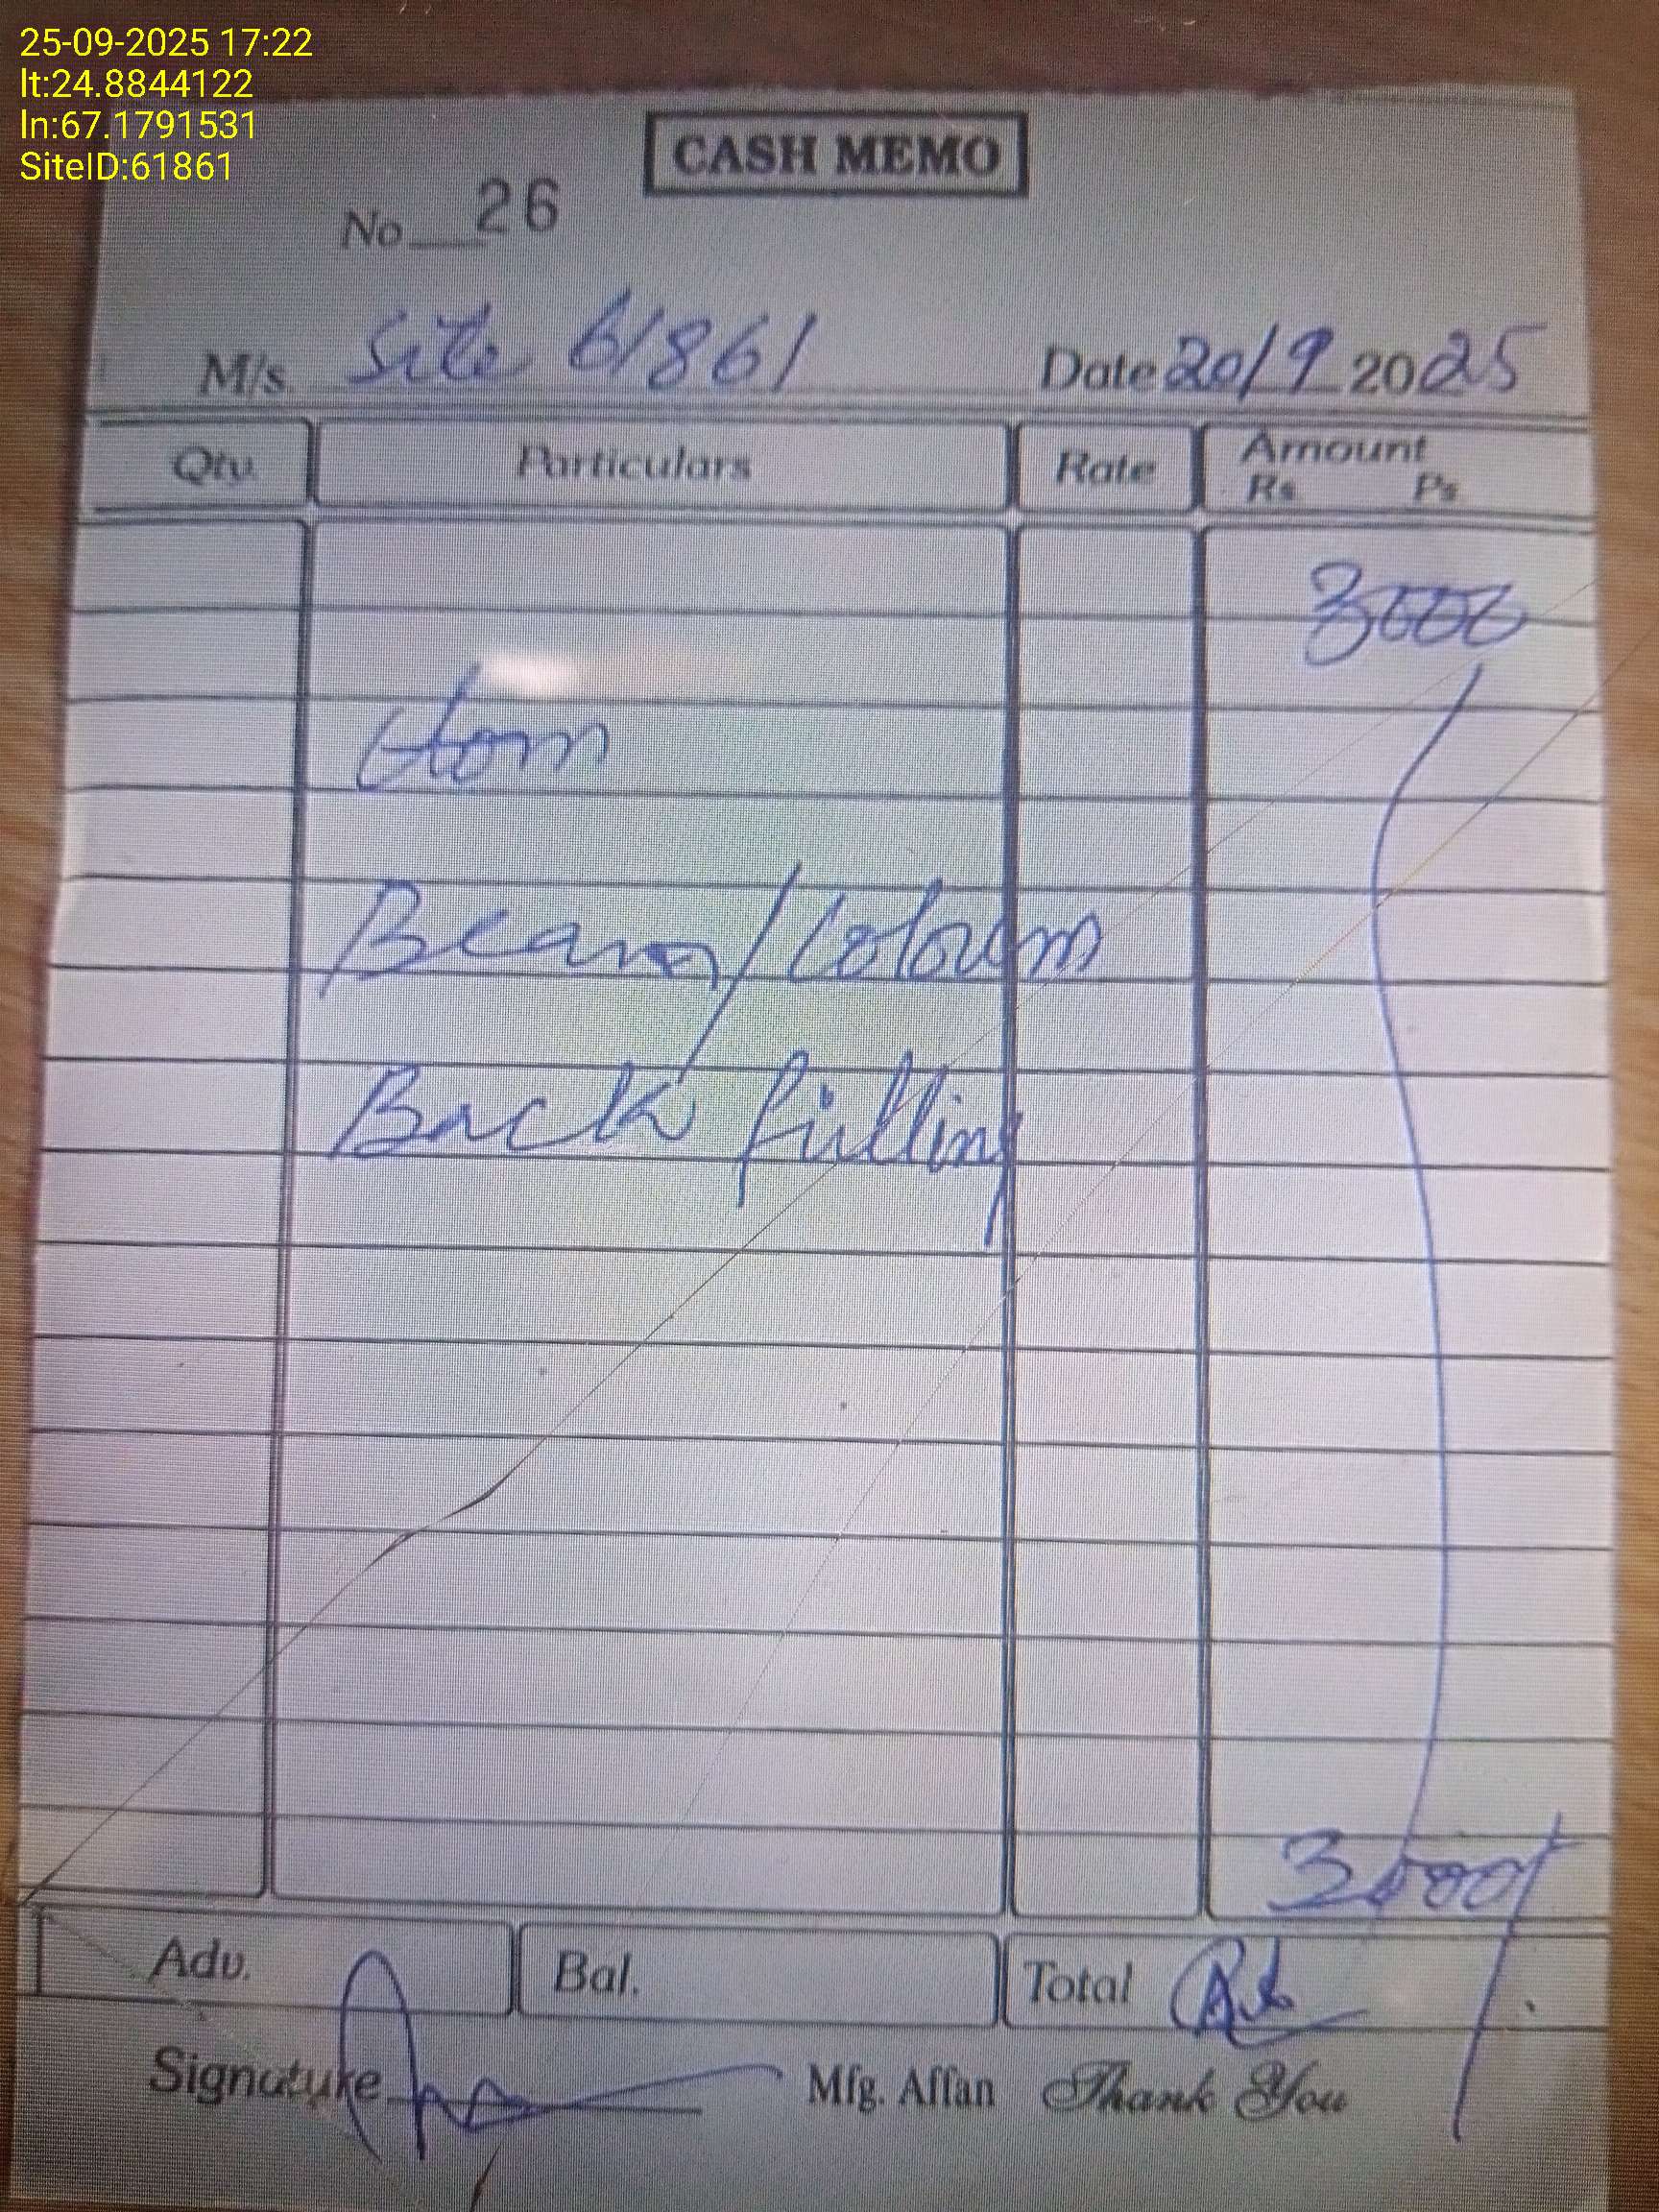 25-09-2025 17:22
lt:24.8844122
ln:67.1791531
SiteID:61861
CASH MEMO
No 26
M/s. Site 61861 Date 20/9 2025
Qty. Particulars Rate Amount
Rs. Ps.
3000
Beam/Coloum
Back filling
3000/
Adv. Bal. Total Rs
Signature Mfg. Affan Thank You